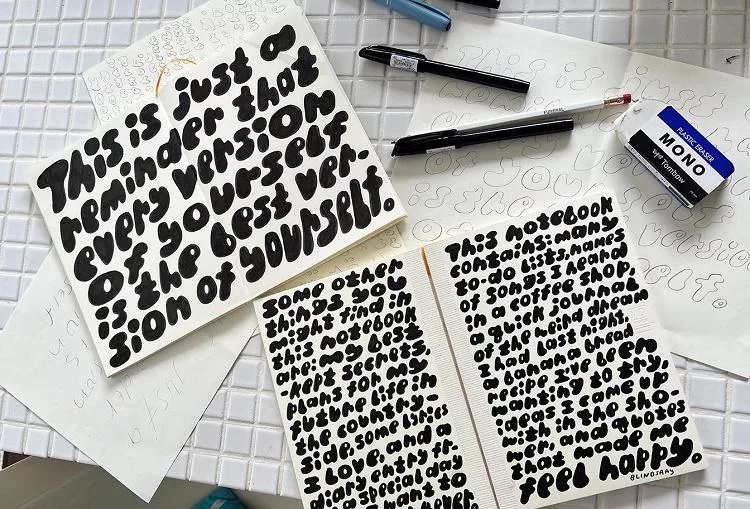 This is just a
reminder that
every version
of yourself
is the best ver-
sion of yourself.
Some other
things you
might find in
this notebook
are: my best
-kept secrets,
plans for my
future life in
the country-
side, some lyrics
I love, and a
diary entry fr.
a special day
I want to
This notebook
contains: many
to-do lists, names
of songs I heard
in a coffee shop,
a quick journal
of the weird dream
I had last night.
a banana bread
recipe I've been
wanting to try,
ideas I came up
with in the sho-
wer, and quotes
that made me
feel happy.
BLINDSRAY
PLASTIC ERASER
MONO
Tombow